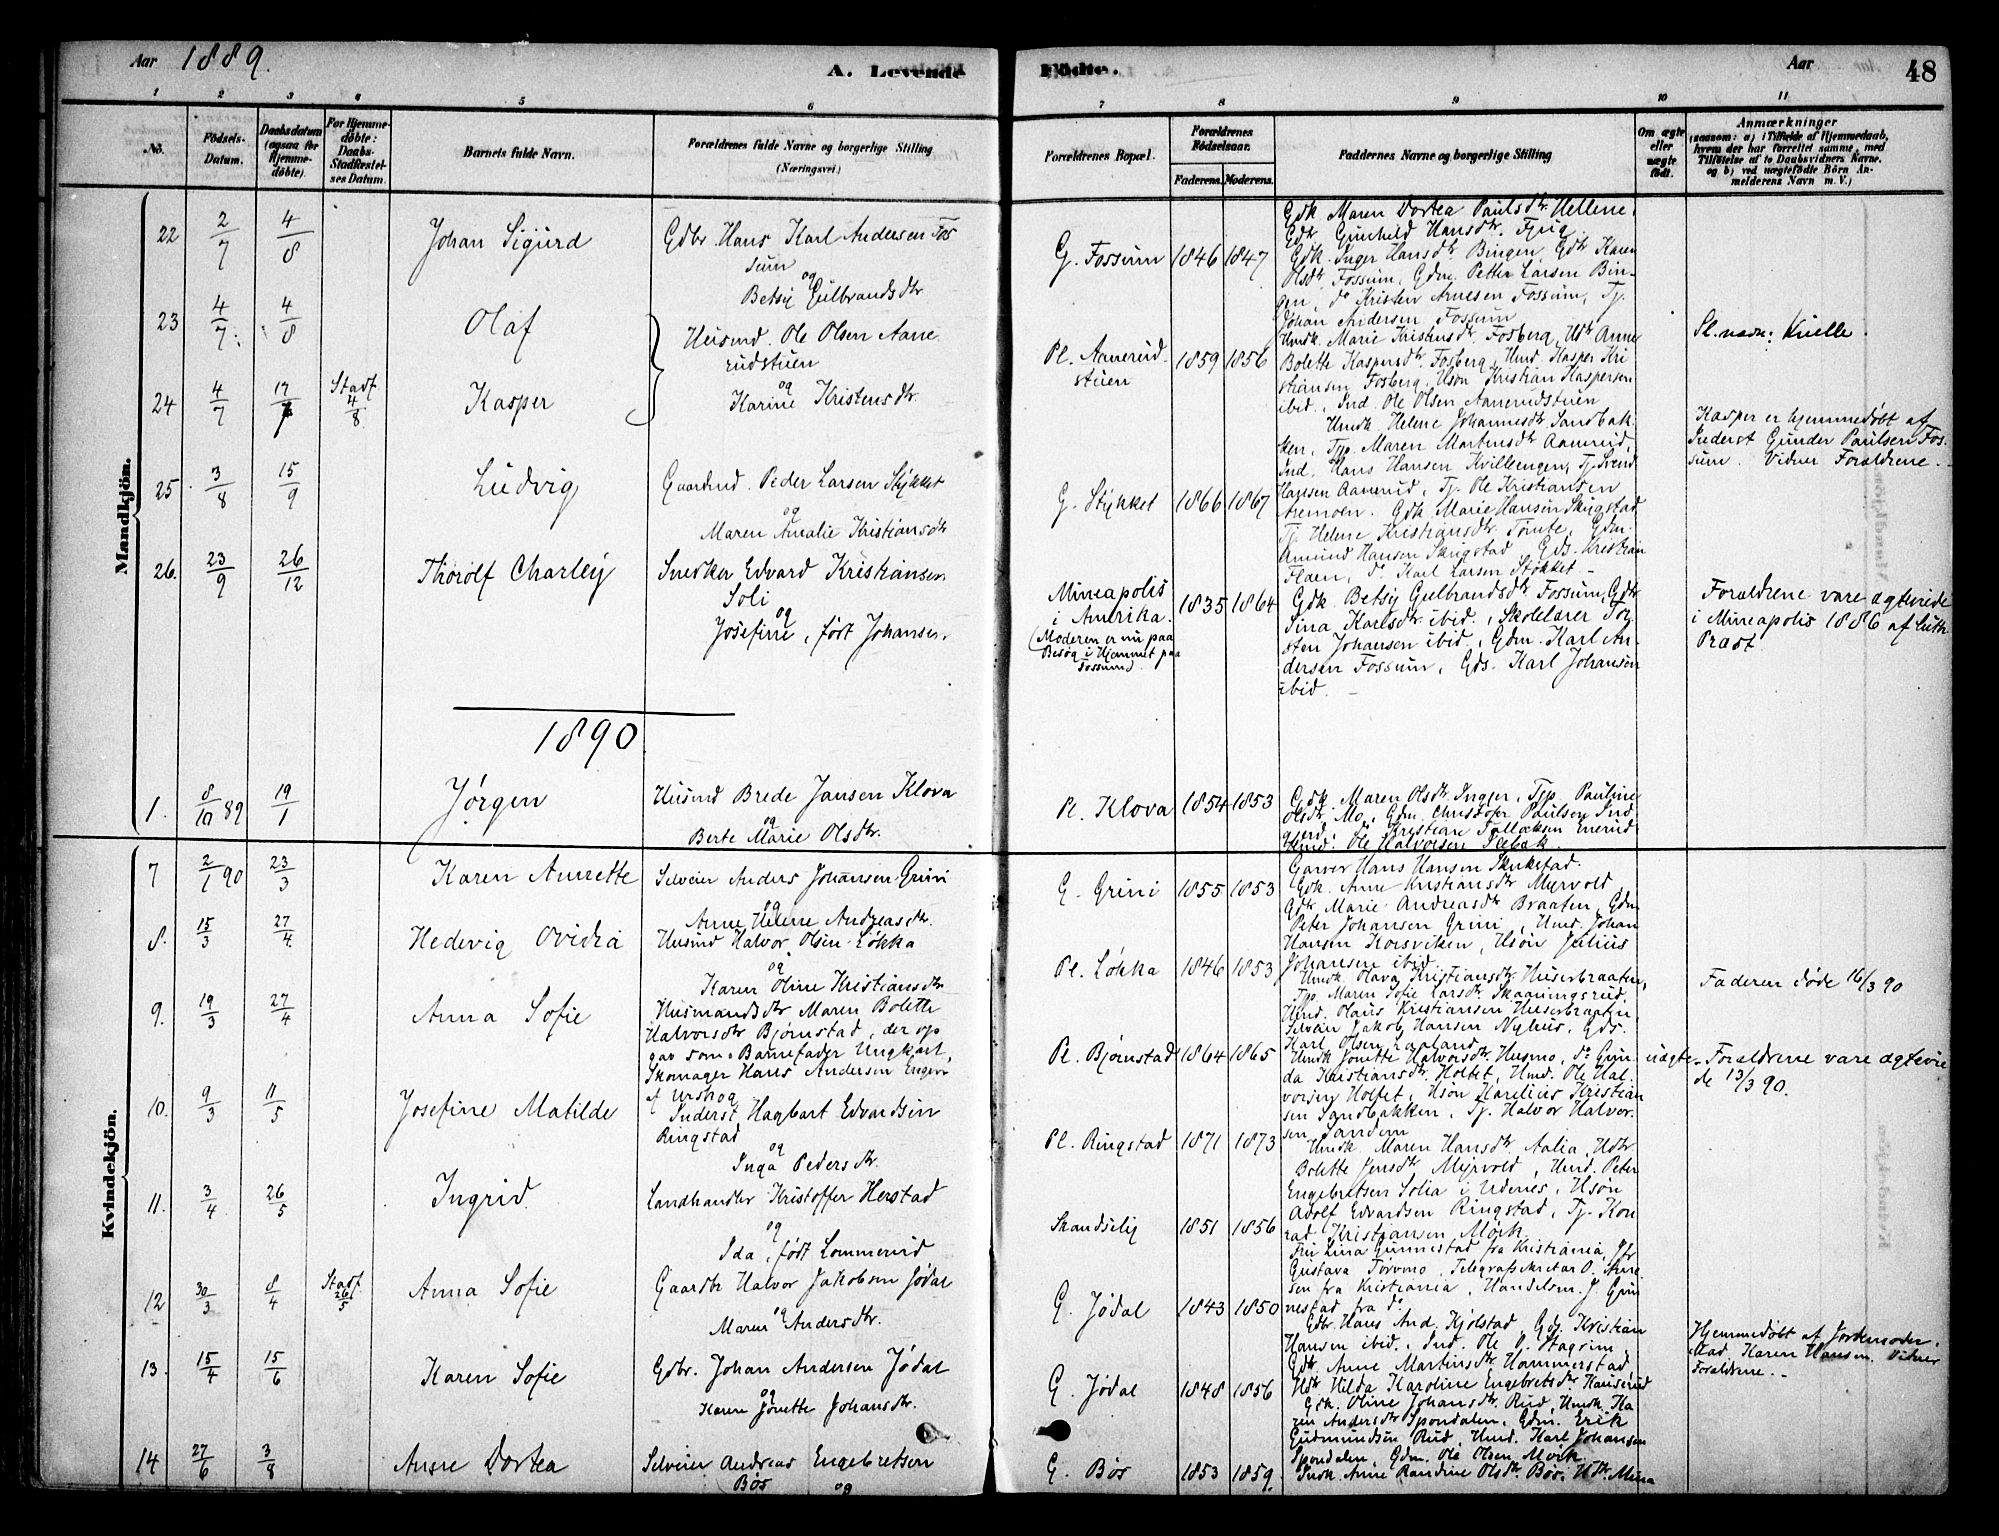 Aar 1889.
A. Levende
Födte.
Aar
48
1 2 3 4 5 6 7 8 9 10 11
No.
Födsels-
Datum.
Daabsdatum
(ogsaa for
Hjemme-
döbte).
For Hjemme-
döbte:
Daabs-
Stadfæstel-
ses Datum.
Barnets fulde Navn.
Forældrenes fulde Navne og borgerlige Stilling
(Næringsvei.)
Forældrenes Bopæl.
Forældrenes
Födselsaar.
Faderens. Moderens.
Faddernes Navne og borgerlige Stilling
Om ægte
eller
uægte
födt.
Anmærkninger
(saasom: a) i Tilfælde af Hjemmedaab,
hvem der har forrettet samme, med
Tilföielse af to Daabsvidners Navne.
og b) ved uægtefödte Börn An-
melderens Navn m. V.)
Mandkjön.
22 2/7 4/8 Johan Sigurd
Gdbr Hans Karl Andersen Fos
sum
og
Betsy Gulbrandsdtr
G. Fossum 1846 1847
Gdk Maren Dortea Paulsdtr Hellene,
Gdtr Gunhild Hansdtr.
Gdk. Inger Hansdtr Bingen, Gdtr Karen
Olsdtr Fossum, Gdm. Petter Larsen Bin-
gen, do Kristen Arnesen Fossum, Tj.
Johan Andersen Fossum
23 4/7 4/8 Olaf
Husmd. Ole Olsen Aane
rudstuen
og
Karine Kristensdtr
Pl. Aanerud-
stuen 1859 1856
Hmdk. Marie Kristensdtr. Fosberg, Hdtr Anne
Bolette Kaspersdtr. Fosberg, Hmd. Kasper Kri
stiansen Fosberg, Hsøn Kristian Kaspersen
ibid., Ind. Ole Olsen Aanerudstuen
Sl. navn: Knelle.
24 4/7 17/7 Stadf. 4/8 Kasper
Hmdk. Helene Johannesdtr Sandbak
ken, Tjp. Maren Martinsdtr Aanerud
Ind. Hans Hansen Kvillengen, Tj. Svend
Hansen Aanerud, Tj. Ole Kristiansen
Kasper er hjemmedøbt af
Inderst Gunder Paulsen Fos-
sum. Vidner Forældrene.
25 3/8 15/9 Ludvig
Gaardmd. Peder Larsen Stykket
og
Maren Amalie Kristiansdtr
G. Stykket 1866 1867
Gdk. Marie Hansen Skrigstad
Tj. Helene Kristiansdtr. Tomte, Gdm.
Amund Hansen Skrigstad Gds. Kristian
Flaen, do. Karl Larsen Støkket
26. 23/9 26/12 Thorolf Charley
Snedker Edvard Kristiansen
Soli
og
Josefine, født Johansen.
Mineapolis
i Amerika.
(Moderen er nu paa
Besøg i Hjemmet paa
Fossum).
1835 1864
Gdk. Betsy Gulbrandsdtr Fossum, Gdtr
Sina Karlsdtr. ibid., Skolelærer Tor
sten Johansen ibid, Gdm. Karl An-
dersen Fossum, Gds. Karl Johansen
ibid.
Forældrene vare ægteviede
i Mineapolis 1886 af luth.
Præst
1890
1. 8/10 89 19/1 Jørgen
Husmd Brede Jansen Klova
og
Berte Marie Olsdtr.
Pl. Klova 1854 1853
Gdk. Maren Olsdtr. Ingjer, Tjp. Pauline
Olsdtr. Mo, Gdm. Christofer Paulsen Ind
gjerd, Kristian Enerud
Hmd. Ole Halvorsen
Kvindekjön.
7 2/1 90 23/3 Karen Annette
Selveier Anders Johansen Grini
og
Anne Helene Andreasdtr.
G. Grini 1855 1853
Garver Hans Hansen
Gdk. Anne Kristiansdtr Myrvold,
Gdtr Marie Andreasdtr Braaten, Gdm
Peter Johansen Grini, Hmd. Johan
Hansen Korsviken, Hsøn Julius
Johansen ibid
8. 15/3 27/4 Hedevig Ovidia
Husmd Halvor Olsen Løkka
og
Karen Oline Kristiansdtr
Pl. Løkka 1846 1853
Hmdk. Olava Kristiansdtr. Huserbraaten,
Tjp. Maren Sofie Larsdtr. Skaaningsrud,
Hmd. Hans Kristiansen Huserbraaten,
Selveier Jakob Hansen Nyhus, Gds.
Karl Olsen Lapland
Faderen døde 16/3 90
9. 19/3 27/4 Anna Sofie
Husmandsdtr Maren Bolette
Halvorsdtr Bjørnstad, der op
gav som Barnefader Ungkarl,
Skomager Hans Andersen Enger
af Urskog
Pl. Bjørnstad 1864 1865
Hmdk Jonette Halvorsdtr. Husmo, do Gun
da Kristiansdtr. Holtet, Hmd. Ole Hal-
vorsen Holtet, Hsøn Karelius Kristian
sen Sandbakken, Tj. Halvor Halvor-
sen Sandem
uægte. Forældrene vare ægtevie
de 13/3 90.
10. 9/3 11/5 Josefine Matilde
Inderst Hagbart Edvardsen
Ringstad
og
Inga Pedersdtr.
Pl. Ringstad 1871 1873
Hmdk Maren Hansdtr Aalia, Hdtr
Bolette Jensdtr Myrvold, Hmd. Peter
Engebretsen Solia i Udenes, Hsøn
Adolf Edvardsen Ringstad, Tj. Kon
rad Kristiansen Mørk
11. 3/4 26/5 Ingrid
Landhandler Kristoffer Herstad
og
Ida, født Lommerud
Skandselig 1851 1856
Frk Lina Gunnestad fra Kristiania, Jfr
Gustava Torvmo, Telegrafsekretær O. Aune
sen fra Kristiania, Handelsm. J. Gun
nestad fra do
12 30/3 8/4 Stadf. 26/5 Anna Sofie
Gaardbr Halvor Jakobsen Jødal
og
Maren Andersdtr.
G. Jødal 1843 1850
Gdbr. Hans And. Kjølstad, Gds. Kristian
Hansen ibid., Ind. Ole O. Stagrim,
Gdtr. Anne Martinsdtr. Hammerstad
Hdtr Hilda Karoline Engebretsdtr. Hauserud
Hjemmedøbt af Jordemoder
Karen Hansen. Vidner
Forældrene.
13. 15/4 15/6 Karen Sofie
Gdbr. Johan Andersen Jødal
og
Karen Jonette Johansdtr.
G. Jødal 1848 1856
Gdk. Oline Johansdtr. Rud, Hmdk. Ka
ren Andersdtr Spondalen, Gdm. Erik
Gudmundsen Rud, Hmd. Karl Johansen
Spondalen, Gdm. Ole Olsen Mørk
14 27/6 3/8 Anne Dortea
Selveier Andreas Engebretsen
Bøs og
G. Bøs 1853 1859.
Indk. Anne Randine Olsdtr. Bøs. Hdtr. Mina